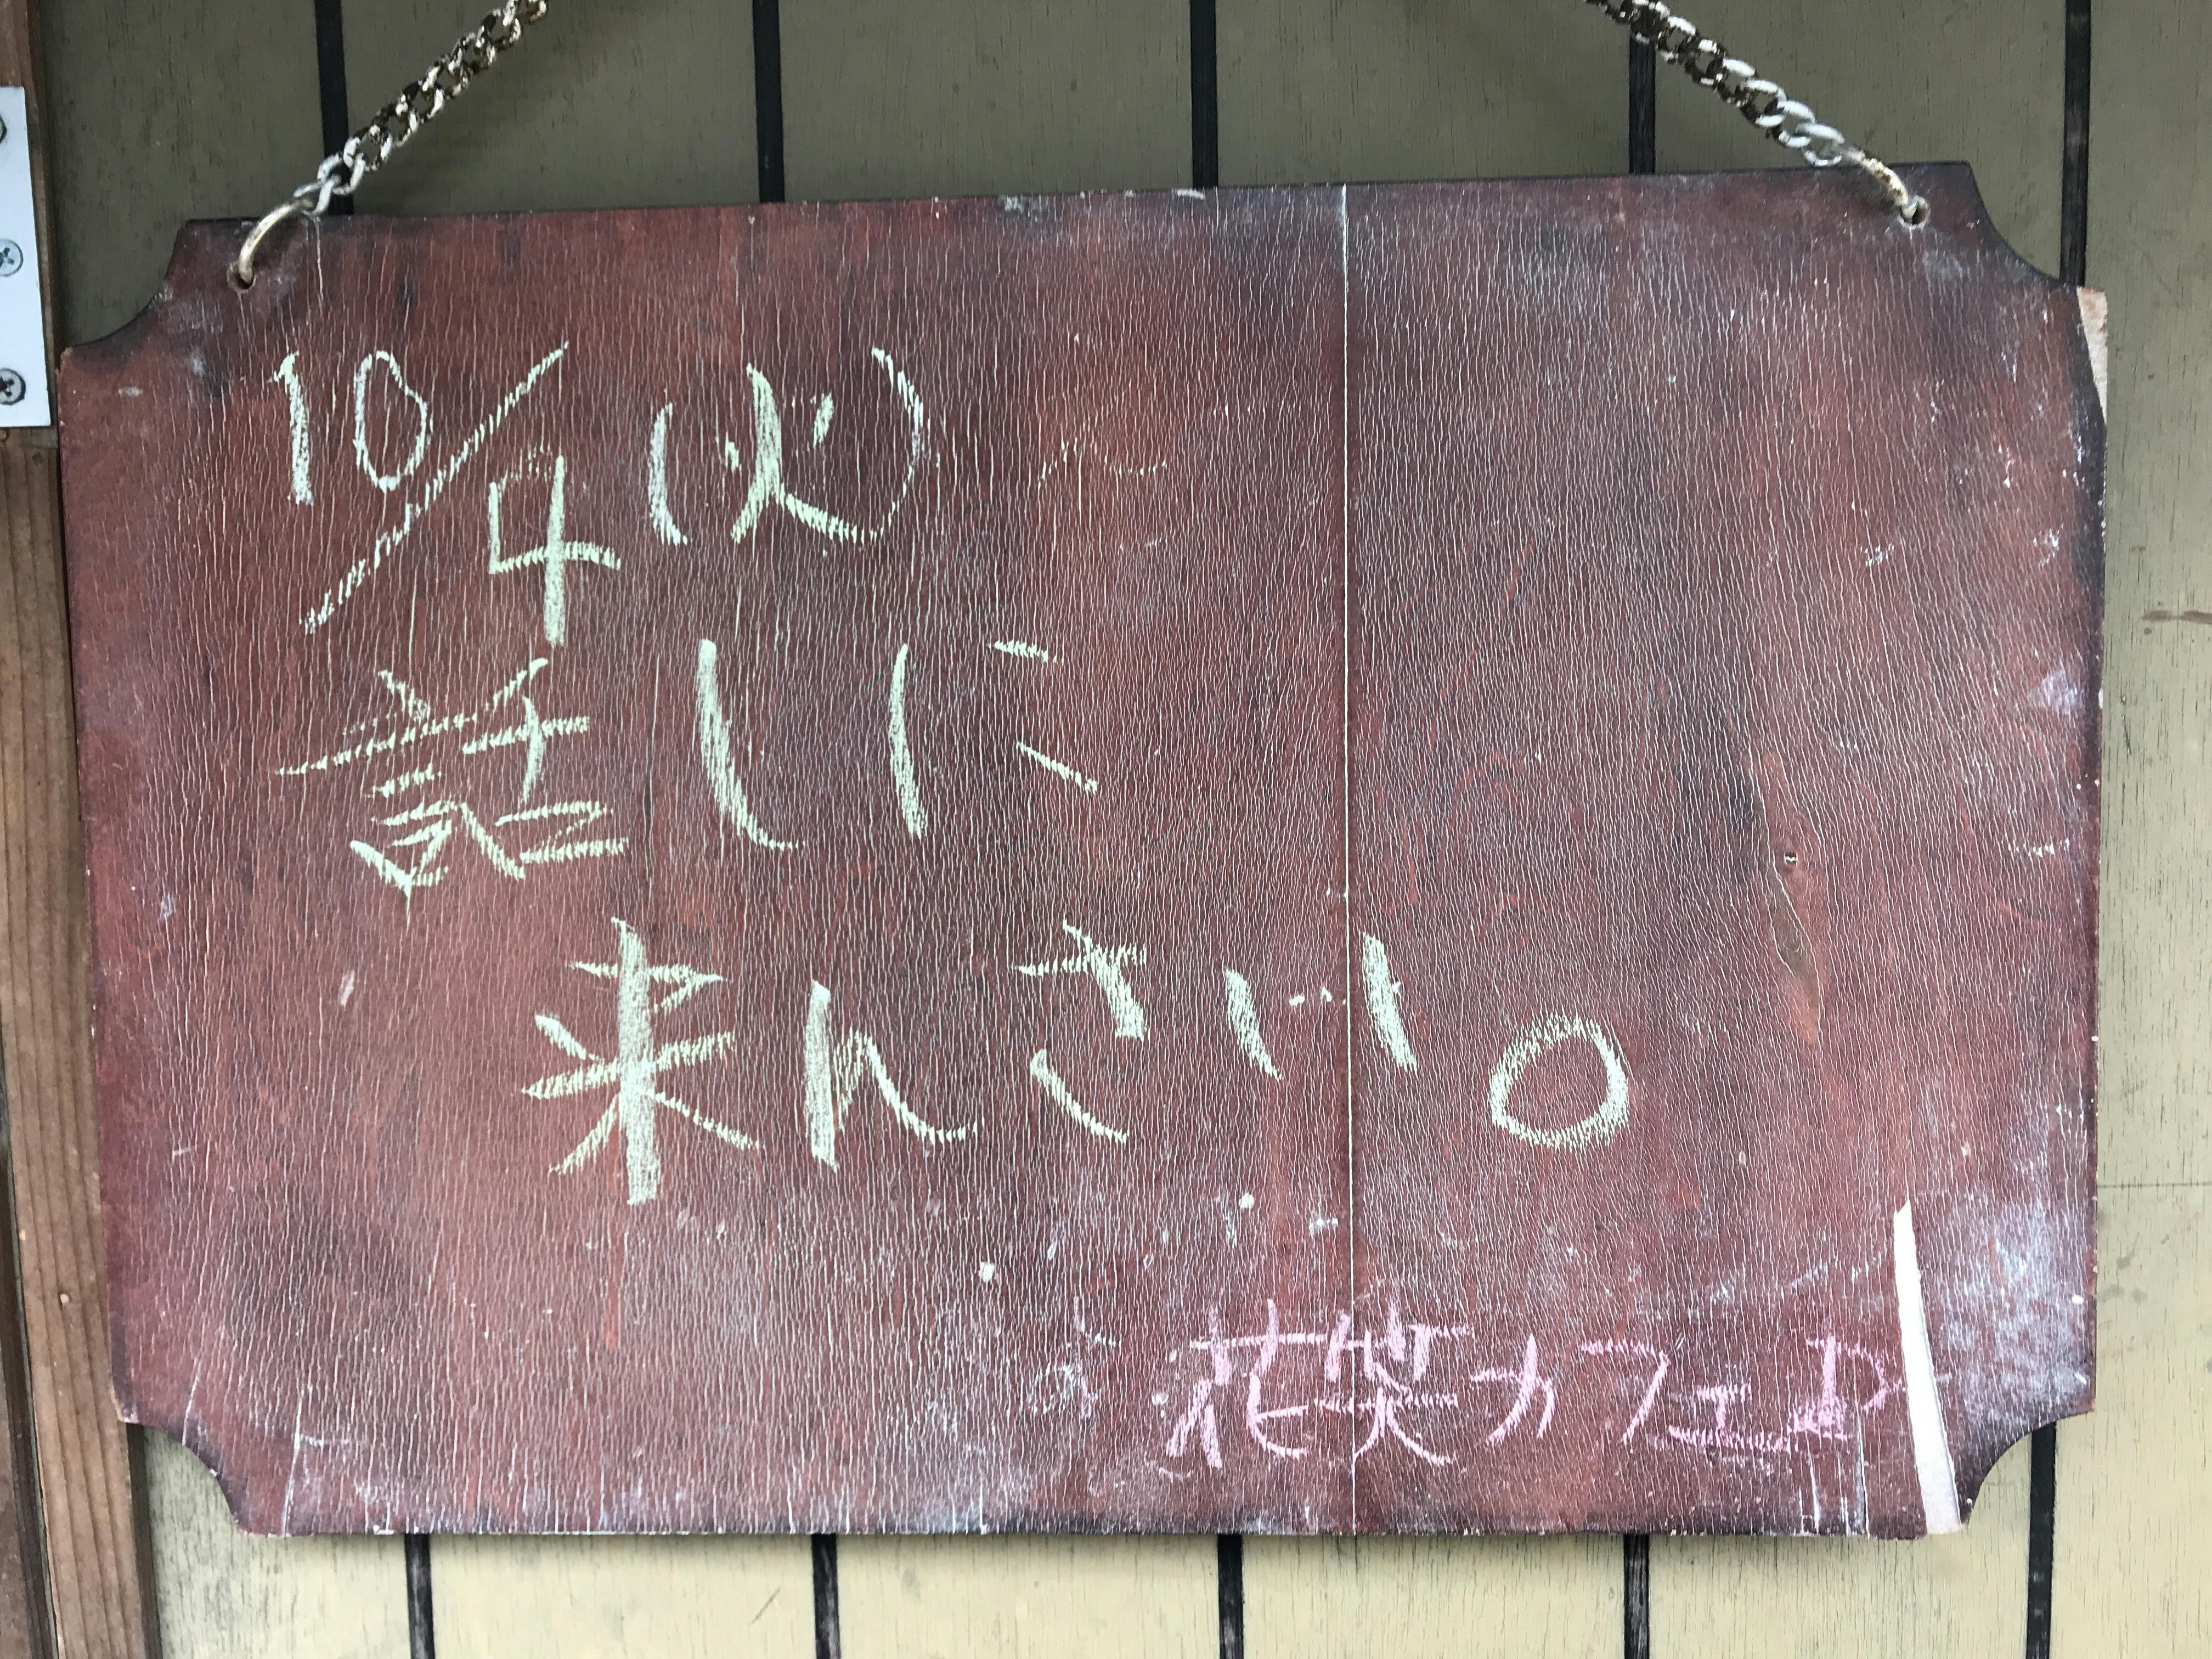 10/4(火)
話しに
来んさい。
花笑カフェ